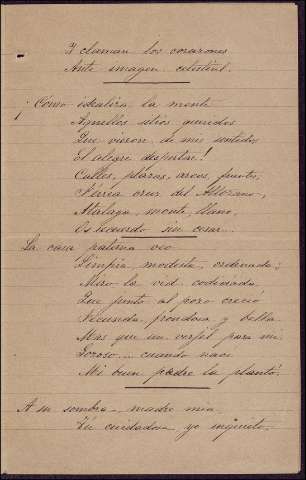 Y claman los corazones
Ante imagen celestial.
¡Como idealiza la mente
Aquellos sitios queridos
Que vieron de mis sentidos
El alegre despertar!
Calles, plazas, arcos, puente,
Férrea cruz del Altozano,
Atalaya, monte, llano,
Os recuerdo sin cesar...
La casa paterna veo
Limpia, modesta, ordenada;
Miro la vid codiciada,
Que junto al pozo creció
Fecunda, frondosa y bella.
Mas que un verjel para mi
Gozoso... cuando nací
Mi buen padre la plantó.
A su sombra, madre mia,
Tú cuidadosa, yo inquieto,